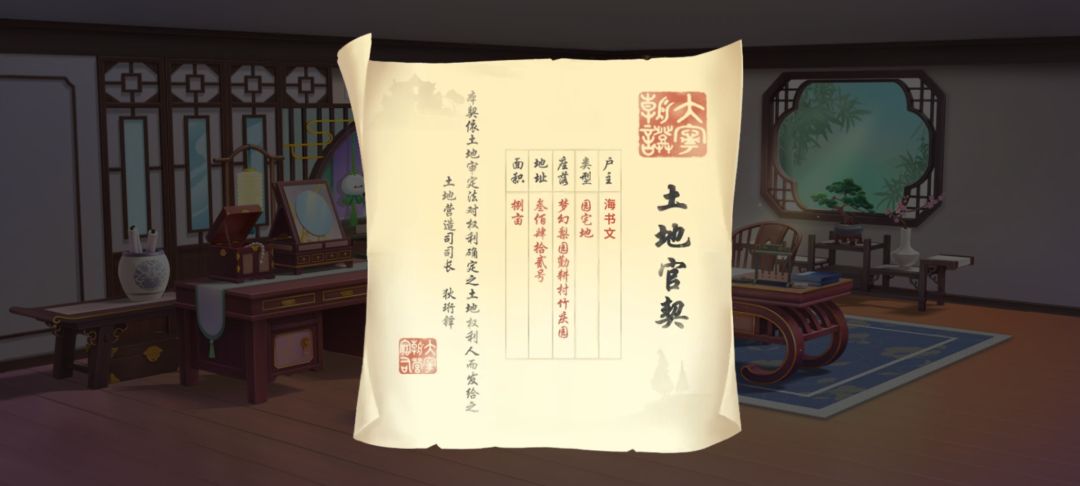 土地官契
户主 海书文
类型 园宅地
座落 梦幻梨园勤耕村竹庆园
地址 叁佰肆拾贰号
面积 捌亩
本契依土地审定法对权利确定之土地权利人而发给之
土地营造司司长 狄珩铎